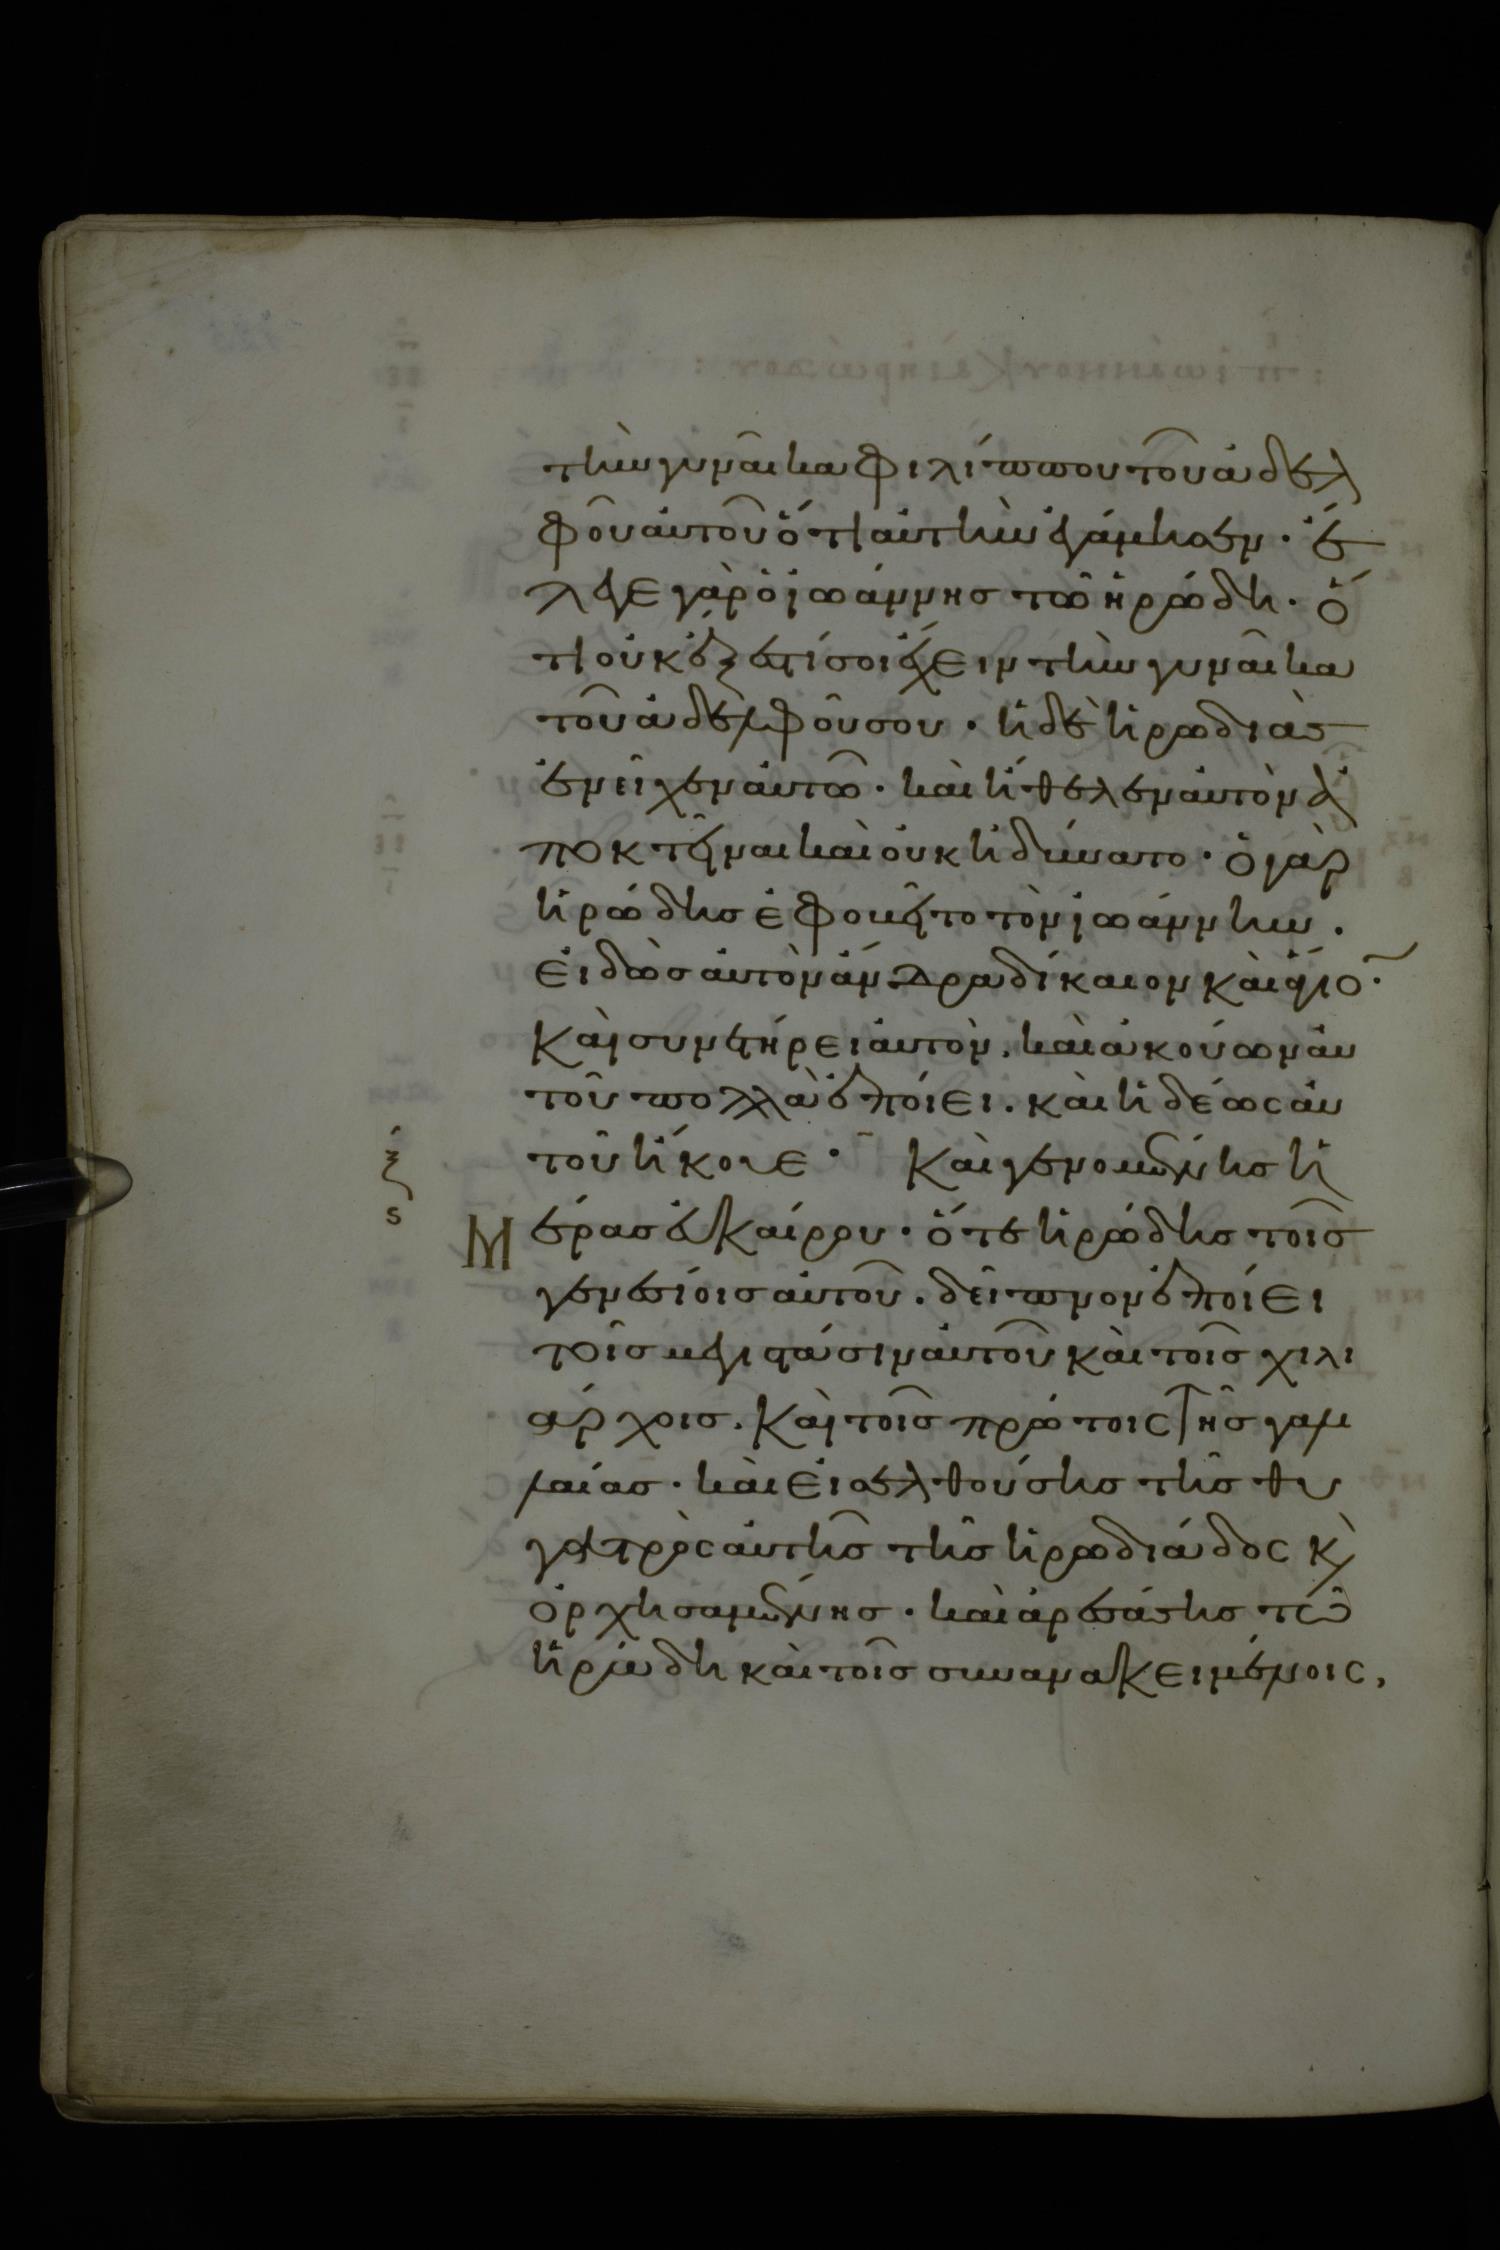 τὴν γυναῖκα Φιλίππου τοῦ ἀδελ
φοῦ αὐτοῦ ὅτι αὐτὴν ἐγάμησεν· ἔ
λεγε γὰρ ὁ ἰωάννης τῶ ἡρώδη· ὅ
τι οὐκ ἔξεστί σοι ἔχειν τὴν γυναῖκα
τοῦ ἀδελφοῦ σου· ἡ δὲ ἡρωδιὰς
ἐνεῖχεν αὐτῶ· καὶ ἤθελεν αὐτὸν ἀ
ποκτεῖναι καὶ οὐκ ἠδύνατο· ὁ γὰρ
ἡρώδης ἐφοβεῖτο τὸν ἰωάννην.
εἰδὼς αὐτὸν ἄνδρα δίκαιον καὶ ἅγιο̃·
καὶ συνετήρει αὐτὸν. καὶ ἀκούων αὐ
τοῦ πολλὰ ἐποίει. καὶ ἡδέως αὐ
τοῦ ἤκουε· Καὶ γενομένης ἡ
ξ
ς
Μ έρας εὐκαίρου· ὅτε ἡρώδης τοῖς
γενεσίοις αὐτοῦ. δεῖπνον ἐποίει
τοῖς μεγιστάσιν αὐτοῦ καὶ τοῖς χιλι
άρχοις. καὶ τοῖς πρώτοις τῆς γαλι
λαίας· καὶ εἰσελθούσης τῆς θυ
γατρὸς αὐτῆς τῆς ἡρωδιάδος κ̀
ὀρχησαμένης· καὶ ἀρεσάσης τῶ
ἡρώδη καὶ τοῖς συνανακειμένοις,